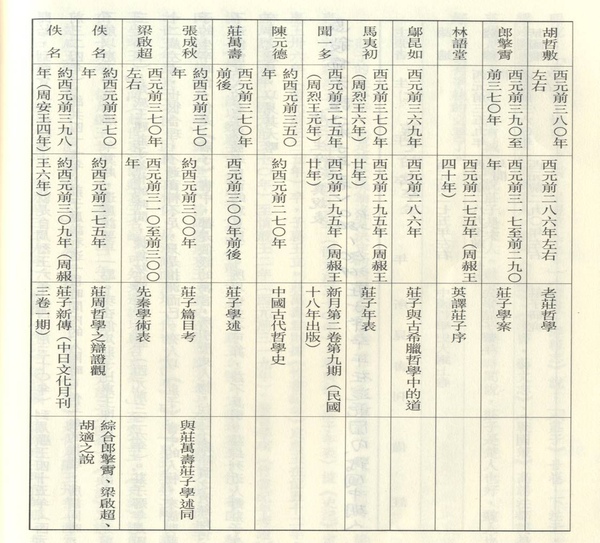 胡哲敷
西元前三八○年
左右
西元前二八六年左右
老莊哲學
郎擎霄
西元前三九○至
前三七○年
西元前三一七至前二九○
年
莊子學案
林語堂
西元前二七五年（周赧王
四十年）
英譯莊子序
鄔昆如
西元前三六九年
西元前二八六年
莊子與古希臘哲學中的道
馬夷初
西元前三七○年
（周烈王六年）
西元前二九五年（周赧王
廿年）
莊子年表
聞一多
西元前三七五年
（周烈王元年）
西元前二九五年（周赧王
廿年）
新月第二卷第九期（民國
十八年出版）
陳元德
約西元前三五○
年
約西元前二七○年
中國古代哲學史
莊萬壽
西元前三七○年
前後
西元前三○○年前後
莊子學述
張成秋
約西元前三七○
年
約西元前三○○年
莊子篇目考
與莊萬壽莊子學述同
梁啟超
西元前三七○年
左右
西元前三一○至前三○○
年
先秦學術表
佚名
約西元前三七○
年
約西元前二七五年
莊周哲學之辯證觀
綜合郎擎霄、梁啟超、
胡適之說
佚名
約西元前三九八
年（周安王四年）
約西元前三○九年（周赧
王六年）
莊子新傳（中日文化月刊
三卷一期）